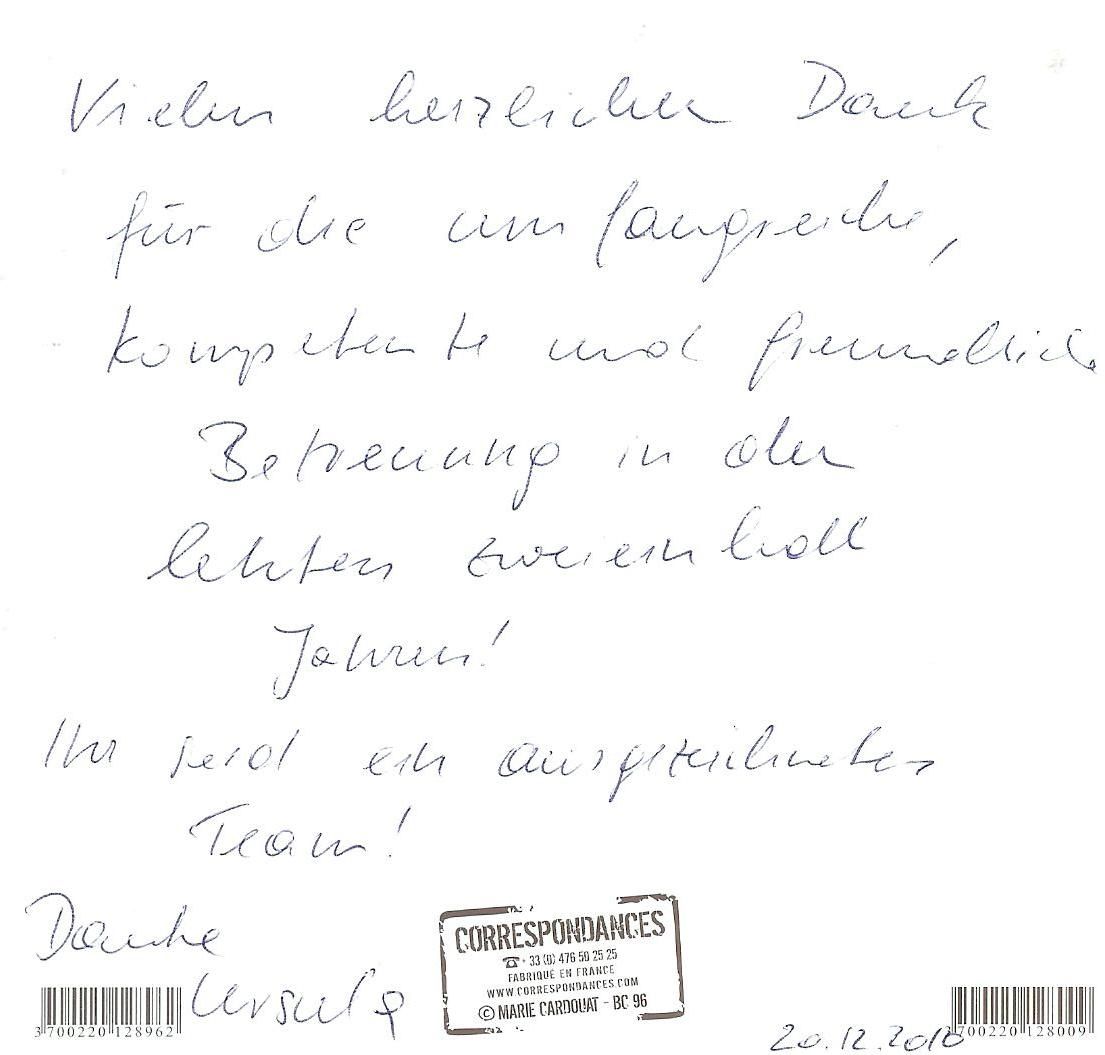 Vielen herzlichen Dank
für die umfangreiche,
kompetente und freundliche
Betreuung in den
letzten zweieinhalb
Jahren!
Ihr seid ein ausgezeichnetes
Team!
Danke
Ursula
CORRESPONDANCES
☎ + 33 (0) 476 50 25 25
FABRIQUÉ EN FRANCE
WWW.CORRESPONDANCES.COM
© MARIE CARDOUAT - BC 96
3 700220 128962
3 700220 128009
20.12.2010